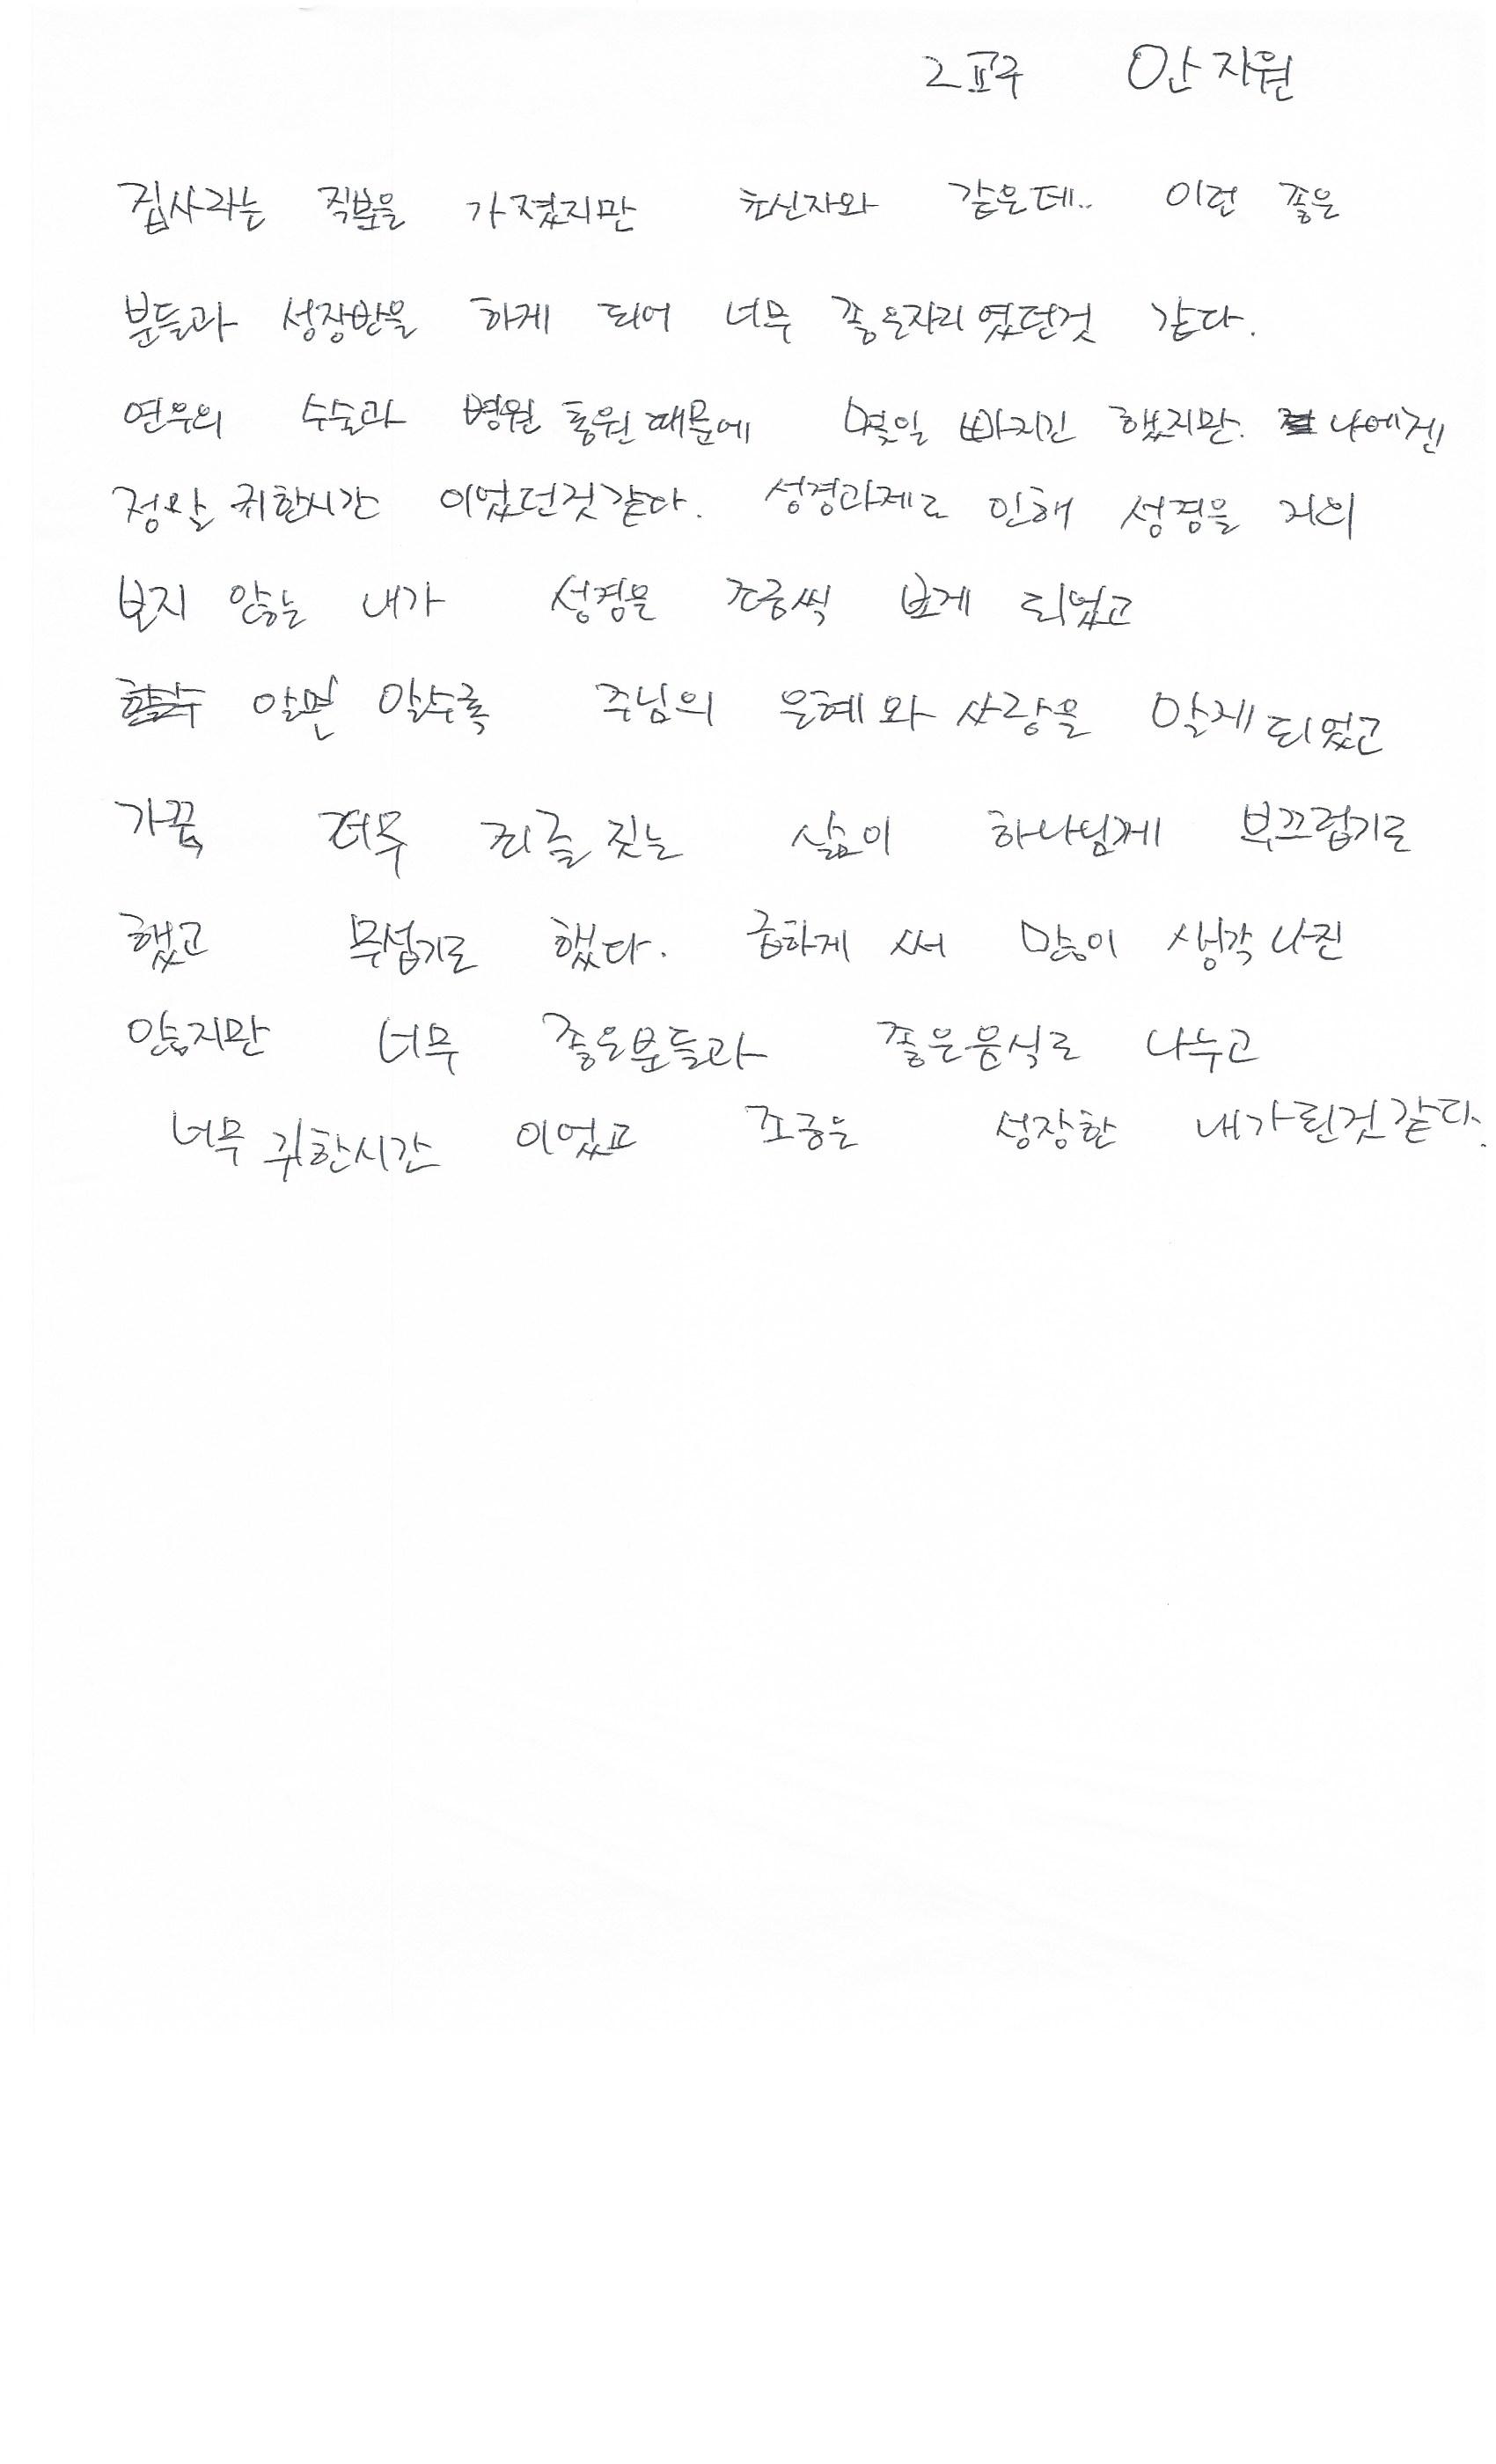 2교구 안지원
집사라는 직분을 가졌지만 초신자와 같은데.. 이런 좋은
분들과 성장반을 하게 되어 너무 좋은자리였던것 같다.
연우의 수술과 병원 통원때문에 몇일 빠지긴 했지만. 나에겐
정말 귀한시간 이었던것같다. 성경과제로 인해 성경을 거의
보지 않는 내가 성경을 조금씩 보게 되었고
알면 알수록 주님의 은혜와 사랑을 알게되었고
가끔 너무 죄를 짓는 삶이 하나님께 부끄럽기도
했고 무섭기도 했다. 급하게 써 많이 생각나진
않지만 너무 좋은분들과 좋은음식도 나누고
너무 귀한시간 이었고 조금은 성장한 내가된것같다.